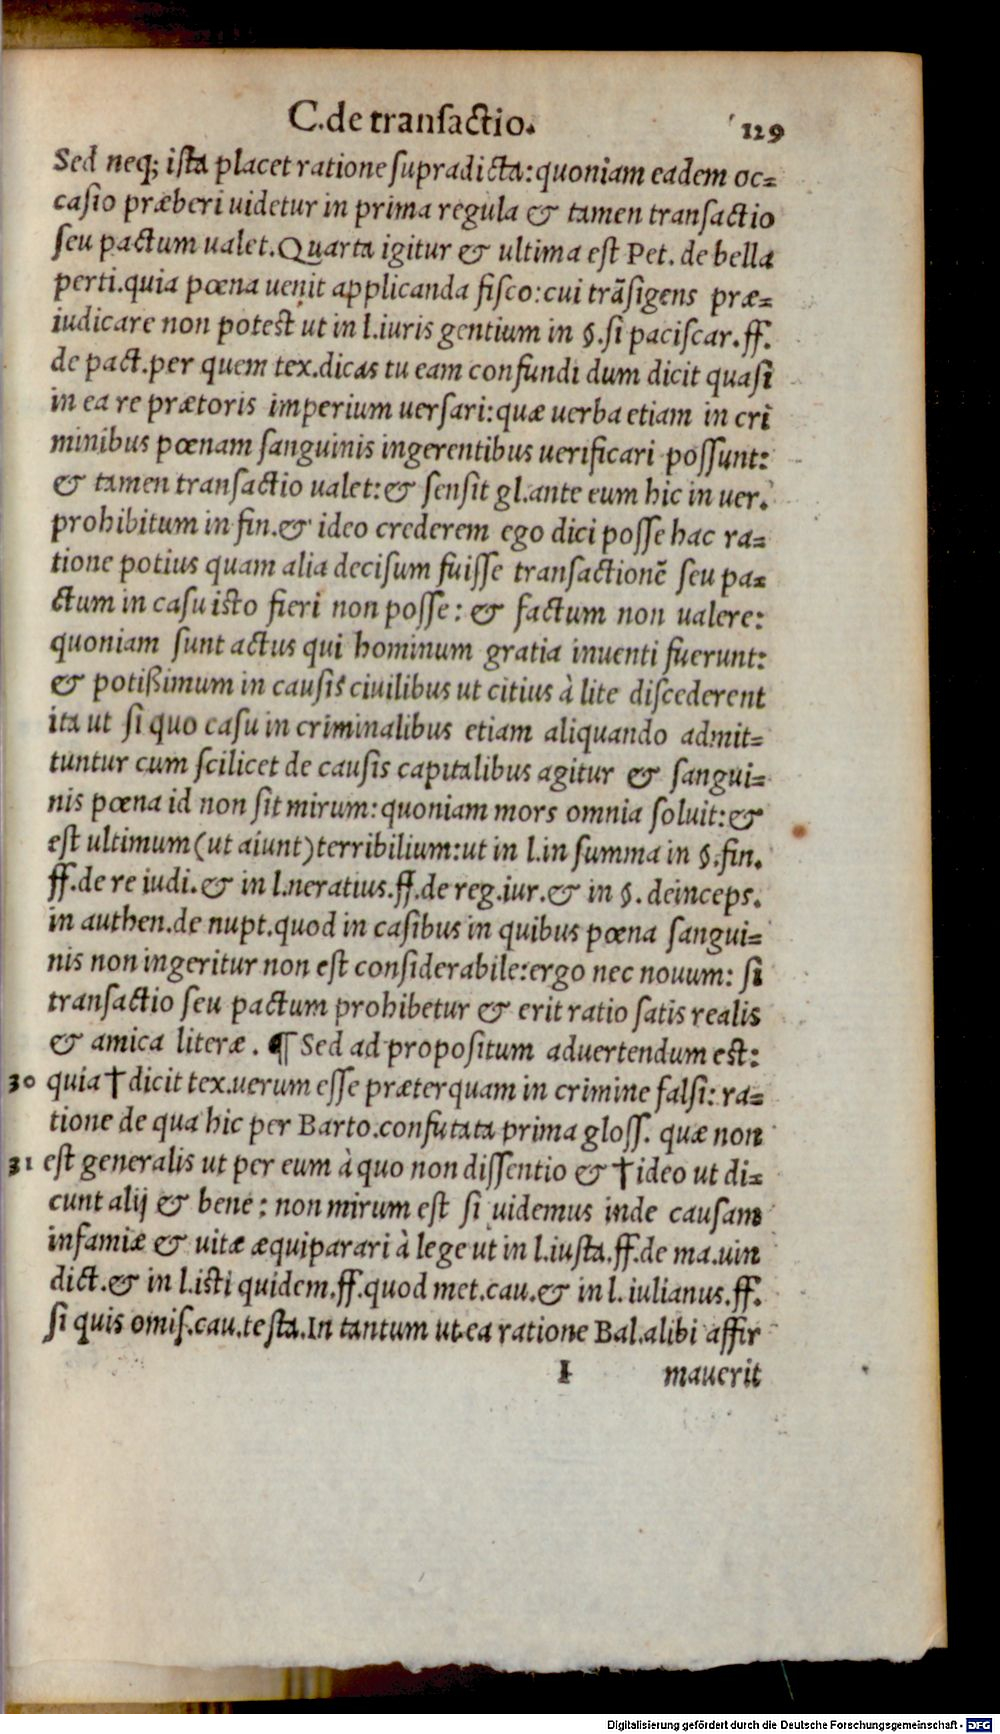 C. de transactio.
129
Sed neq; ista placet ratione supradicta: quoniam eadem oc=
casio præberi uidetur in prima regula & tamen transactio
seu pactum ualet. Quarta igitur & ultima est Pet. de bella
perti. quia pœna uenit applicanda fisco: cui trãsigens præ=
iudicare non potest ut in l. iuris gentium in §. si paciscar. ff.
de pact. per quem tex. dicas tu eam confundi dum dicit quasi
in ea re prætoris imperium uersari: quæ uerba etiam in cri
minibus pœnam sanguinis ingerentibus uerificari possunt:
& tamen transactio ualet: & sensit gl. ante eum hic in uer.
prohibitum in fin. & ideo crederem ego dici posse hac ra=
tione potius quam alia decisum fuisse transactionẽ seu pa=
ctum in casu isto fieri non posse: & factum non ualere:
quoniam sunt actus qui hominum gratia inuenti fuerunt:
& potißimum in causis ciuilibus ut citius à lite discederent
ita ut si quo casu in criminalibus etiam aliquando admit=
tuntur cum scilicet de causis capitalibus agitur & sangui=
nis pœna id non sit mirum: quoniam mors omnia soluit: &
est ultimum (ut aiunt) terribilium: ut in l. in summa in §. fin.
ff. de re iudi. & in l. neratius. ff. de reg. iur. & in §. deinceps.
in authen. de nupt. quod in casibus in quibus pœna sangui=
nis non ingeritur non est considerabile: ergo nec nouum: si
transactio seu pactum prohibetur & erit ratio satis realis
& amica literæ. ¶ Sed ad propositum aduertendum est:
30 quia † dicit tex. uerum esse præterquam in crimine falsi: ra=
tione de qua hic per Barto. confutata prima gloss. quæ non
31 est generalis ut per eum à quo non dissentio & † ideo ut di=
cunt alij & bene: non mirum est si uidemus inde causam
infamiæ & uitæ æquiparari à lege ut in l. iusta. ff. de ma. uin
dict. & in l. isti quidem. ff. quod met. cau. & in l. iulianus. ff.
si quis omis. cau. testa. In tantum ut ea ratione Bal. alibi affir
I mauerit
Digitalisierung gefördert durch die Deutsche Forschungsgemeinschaft - DFG